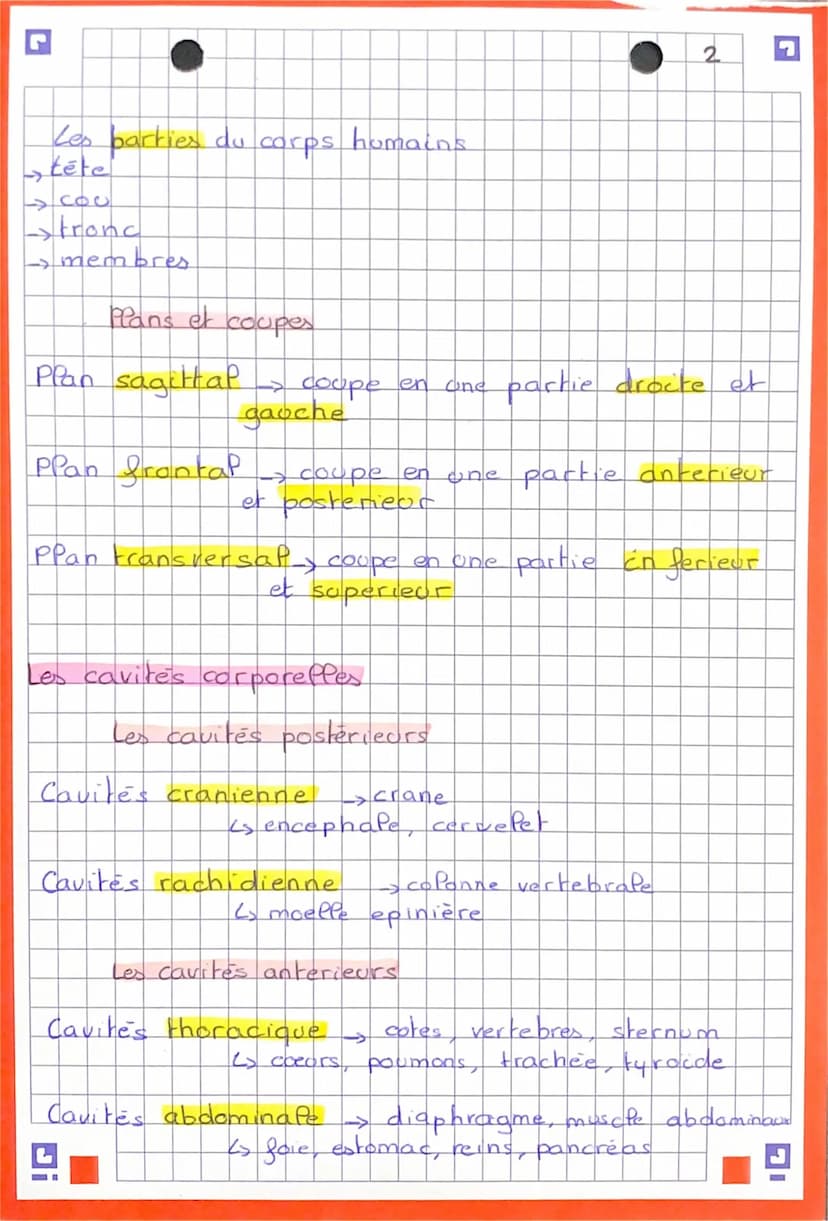 2
Les parties du corps humains
→ tête
→ cou
→ tronc
→ membres
Plans et coupes
Plan sagittal → coupe en une partie droite et
gauche
Plan frontal → coupe en une partie anterieur
et posterieur
Plan transversal → coupe en une partie inferieur
et superieur
Les cavités corporelles
Les cavités postérieurs
Cavités cranienne → crane
↳ encephale, cervelet
Cavités rachidienne → colonne vertebrale
↳ moelle epinière
Les cavités anterieurs
Cavités thoracique → cotes, vertebres, sternum
↳ cœurs, poumons, trachée, tyroïde
Cavités abdominale → diaphragme, muscle abdominaux
↳ foie, estomac, reins, pancréas